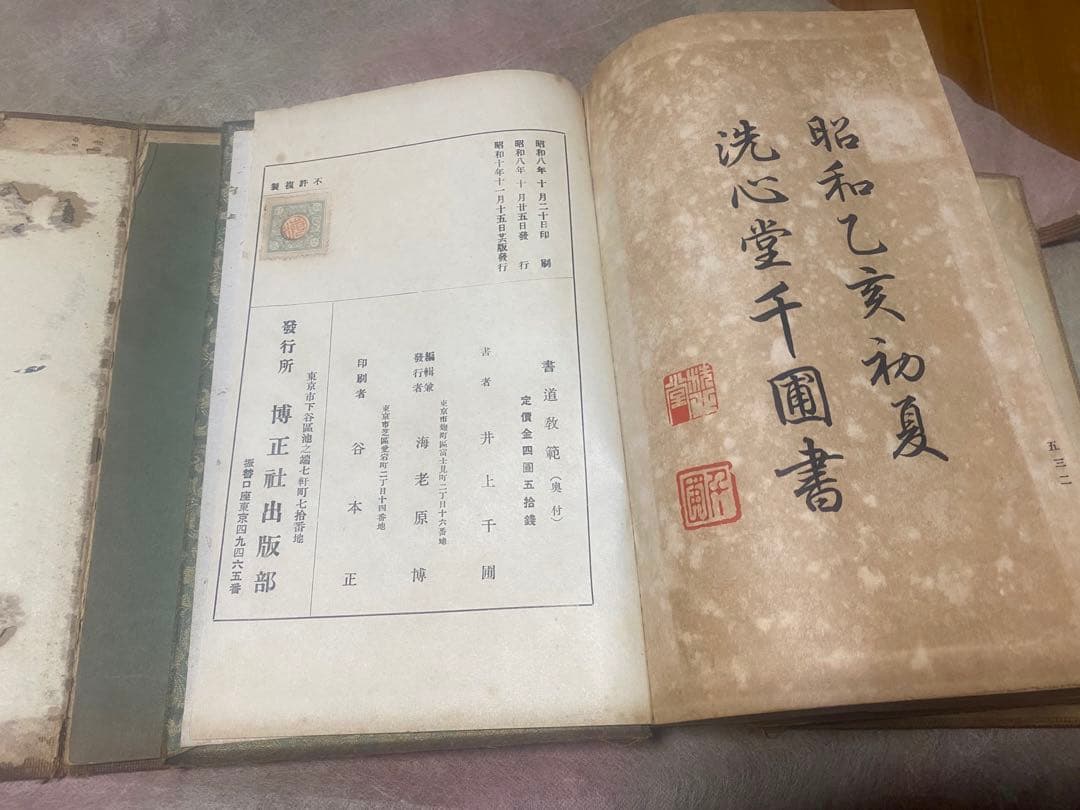 昭和乙亥初夏
洗心堂千圃書
五三二
昭和八年十月二十日印刷
昭和八年十月廿五日發行
昭和十年十一月十五日廿版發行
不許複製
書道敎範（奧付）
定價金四圓五拾錢
書者 井上千圃
東京市麹町區富士見町二丁目十六番地
編輯兼發行者 海老原博
東京市芝區愛宕町二丁目十四番地
印刷者 谷本正
東京市下谷區池之端七軒町七拾番地
發行所 博正社出版部
振替口座東京四九四六五番